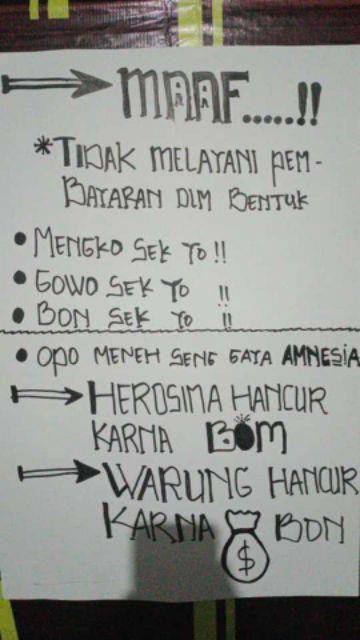 MAAF.....!!
*TIDAK MELAYANI PEM-
BAYARAN DLM BENTUK
• MENGKO SEK YO !!
• GOWO SEK YO !!
• BON SEK YO !!
• OPO MENEH SENG GAYA AMNESiA
HEROSIMA HANCUR
KARNA BOM
WARUNG HANCUR
KARNA $ BON